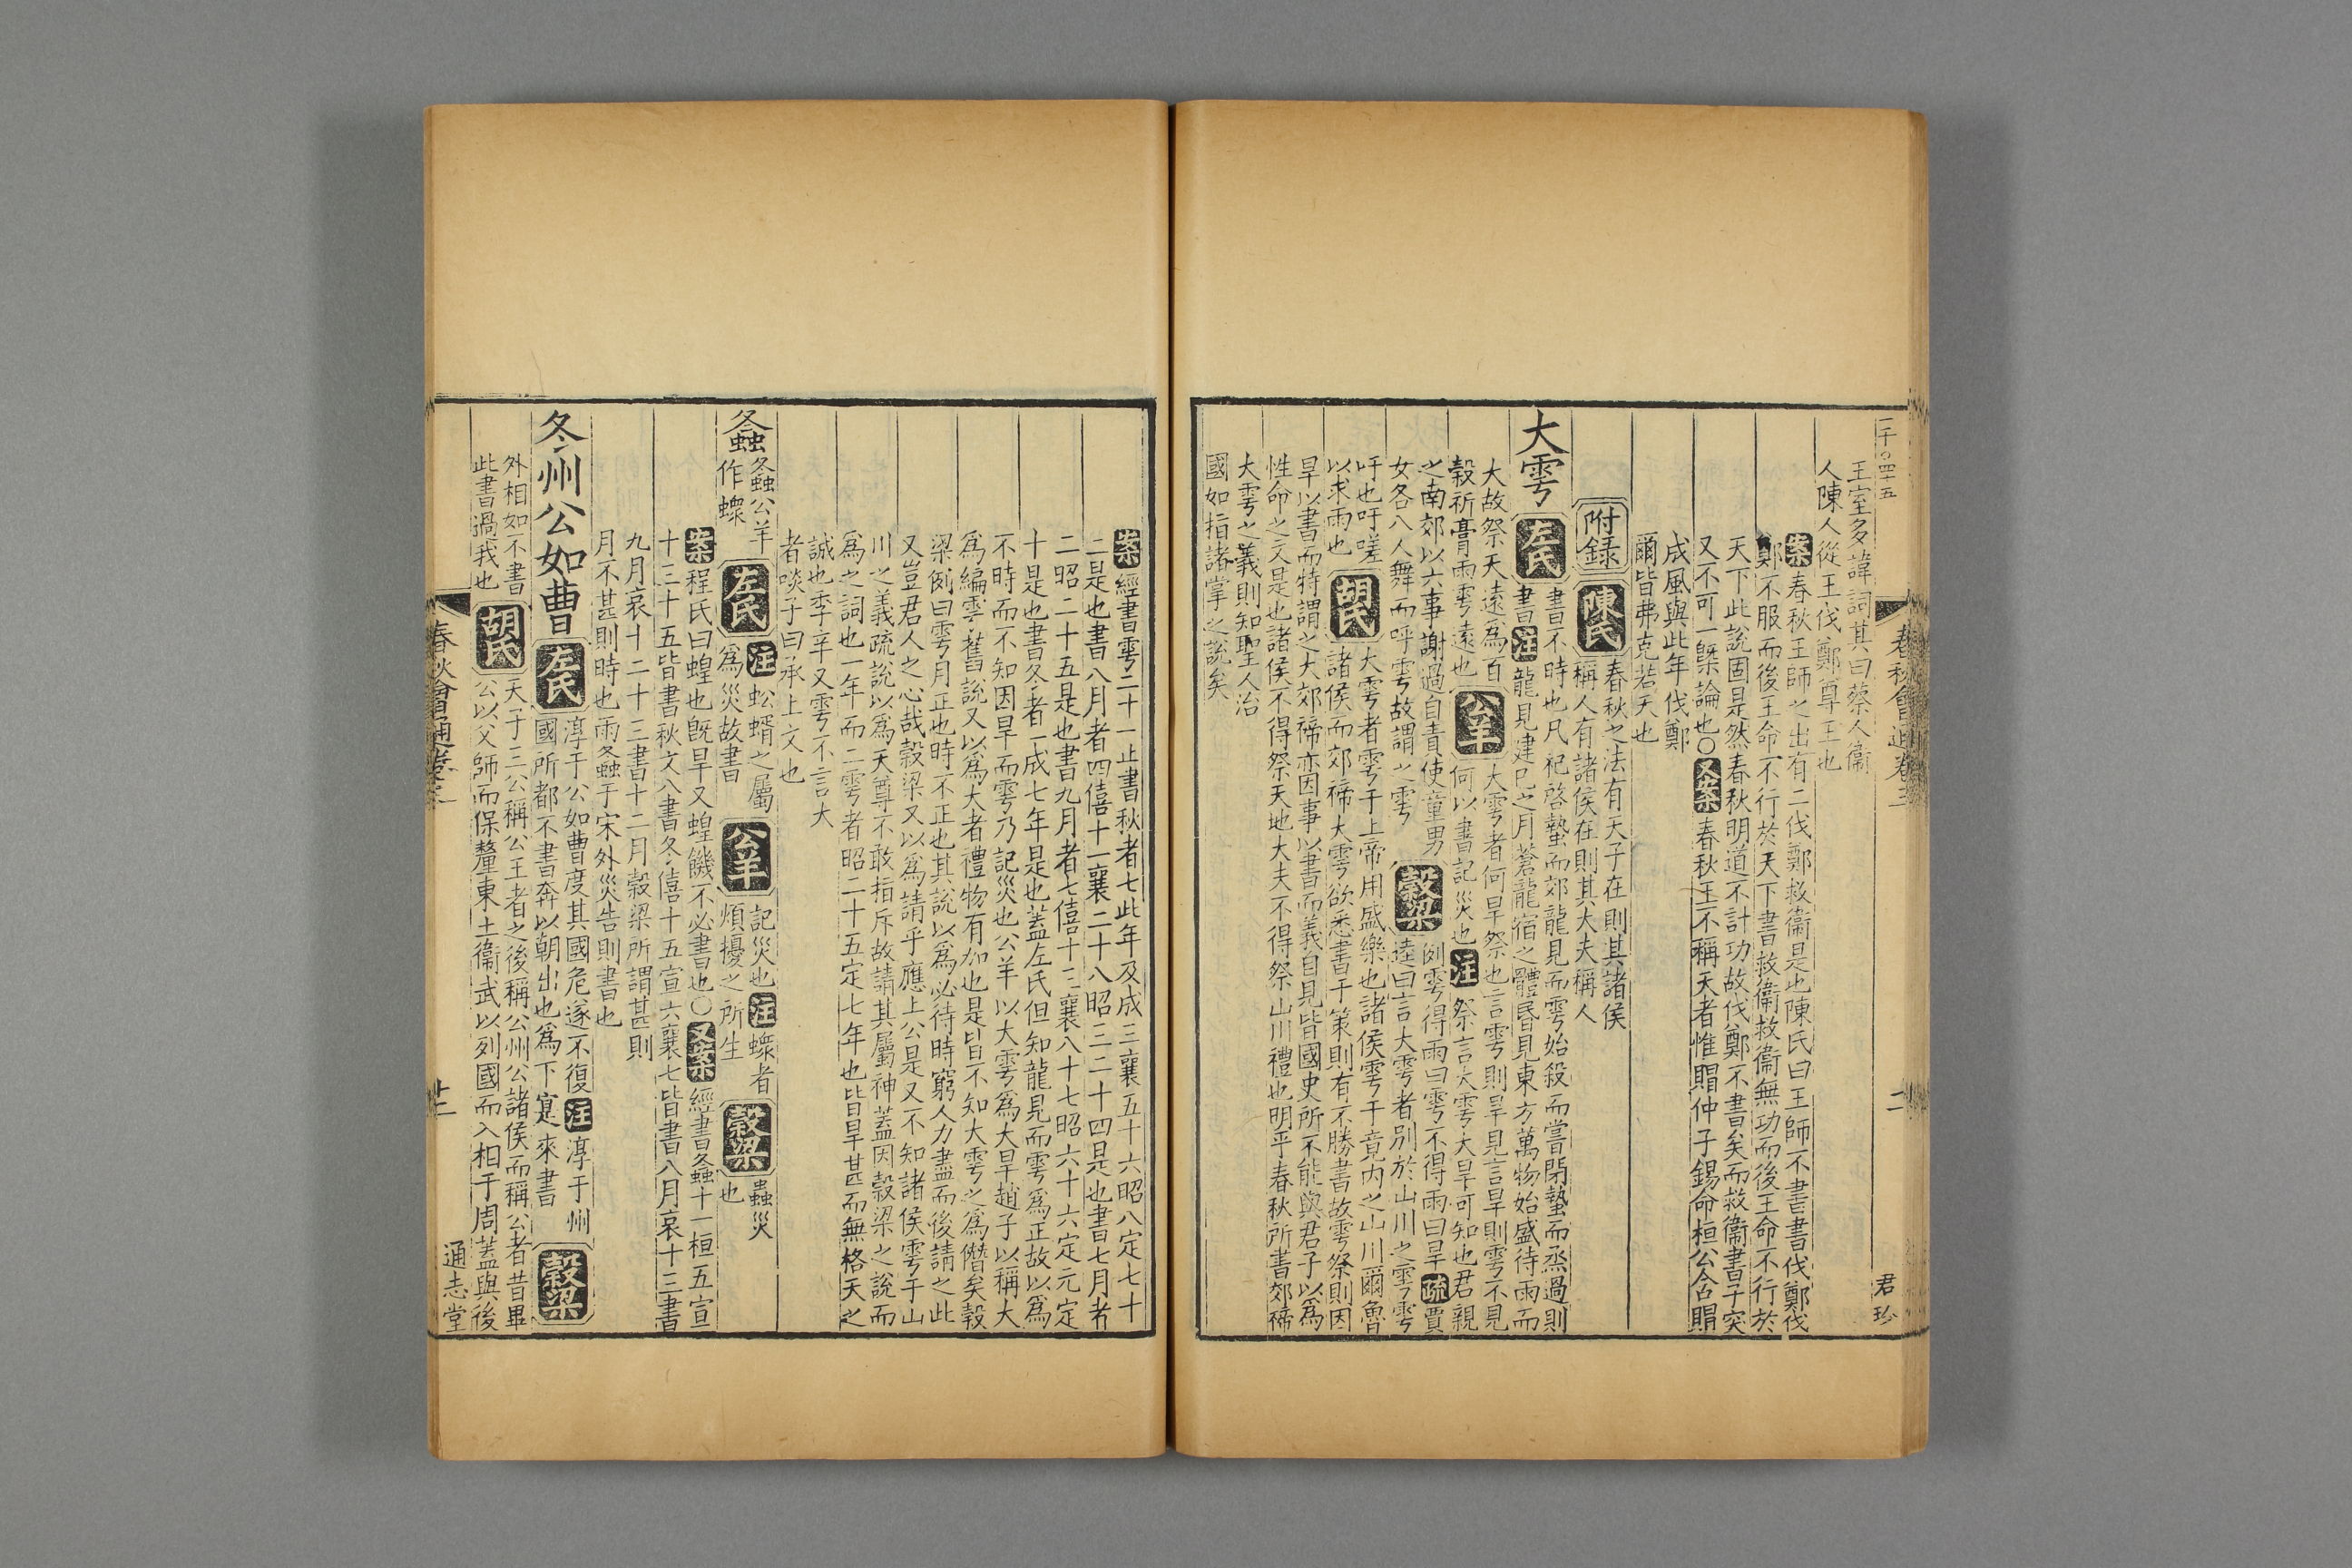 二千〇四十五
春秋會通卷三
十一
君珍
王室多諱詞其曰蔡人衞
人陳人從王伐鄭尊王也
案春秋王師之出有二伐鄭救衞是也陳氏曰王師不書書伐鄭伐
鄭不服而後王命不行於天下書救衞救衞無功而後王命不行於
天下此說固是然春秋明道不計功故伐鄭不書矣而救衞書子突
又不可一槩論也〇又案春秋王不稱天者惟賵仲子錫命桓公含賵
成風與此年伐鄭
爾皆弗克若天也
附錄
陳氏
春秋之法有天子在則其諸侯
稱人有諸侯在則其大夫稱人
大雩
左氏
書不時也凡祀啓蟄而郊龍見而雩始殺而嘗閉蟄而烝過則
書注龍見建巳之月蒼龍宿之體昏見東方萬物始盛待雨而
大故祭天遠爲百
穀祈膏雨雩遠也
公羊
大雩者何旱祭也言雩則旱見言旱則雩不見
何以書記災也注祭言大雩大旱可知也君親
之南郊以六事謝過自責使童男
女各八人舞而呼雩故謂之雩
穀梁
例雩得雨曰雩不得雨曰旱疏賈
逵曰言大雩者別於山川之雩雩
吁也吁嗟
以求雨也
胡氏
大雩者雩于上帝用盛樂也諸侯雩于竟內之山川爾魯
諸侯而郊禘大雩欲悉書于策則有不勝書故雩祭則因
旱以書而特謂之大郊禘亦因事以書而義自見皆國史所不能與君子以爲
性命之文是也諸侯不得祭天地大夫不得祭山川禮也明乎春秋所書郊禘
大雩之義則知聖人治
國如指諸掌之說矣
案經書雩二十一止書秋者七此年及成三襄五十六昭八定七十
二是也書八月者四僖十一襄二十八昭三二十四是也書七月者
二昭二十五是也書九月者七僖十三襄八十七昭六十六定元定
十是也書冬者一成七年是也蓋左氏但知龍見而雩爲正故以爲
不時而不知因旱而雩乃記災也公羊以大雩爲大旱趙子以稱大
爲編雩舊說又以爲大者禮物有加也是皆不知大雩之爲僭矣穀
梁例曰雩月正也時不正也其說以爲必待時窮人力盡而後請之此
又豈君人之心哉穀梁又以爲請乎應上公是又不知諸侯雩于山
川之義疏說以爲天尊不敢指斥故請其屬神蓋因穀梁之說而
爲之詞也一年而二雩者昭二十五定七年也皆旱甚而無格天之
誠也季辛又雩不言大
者啖子曰承上文也
螽
螽公羊
作蟓
左氏
注蚣蝑之屬
爲災故書
公羊
記災也注蟓者
煩擾之所生
穀梁
蟲災
也
案程氏曰蝗也旣旱又蝗饑不必書也〇又案經書螽十一桓五宣
十三十五皆書秋文八書冬僖十五宣六襄七皆書八月哀十三書
九月哀十二十三書十二月穀梁所謂甚則
月不甚則時也雨螽于宋外災告則書也
冬州公如曹
左氏
淳于公如曹度其國危遂不復注淳于州
國所都不書奔以朝出也爲下寔來書
穀梁
外相如不書
此書過我也
胡氏
天子三公稱公王者之後稱公州公諸侯而稱公者昔畢
公以父師而保釐東土衞武以列國而入相于周蓋與後
春秋會通卷三
十一
通志堂